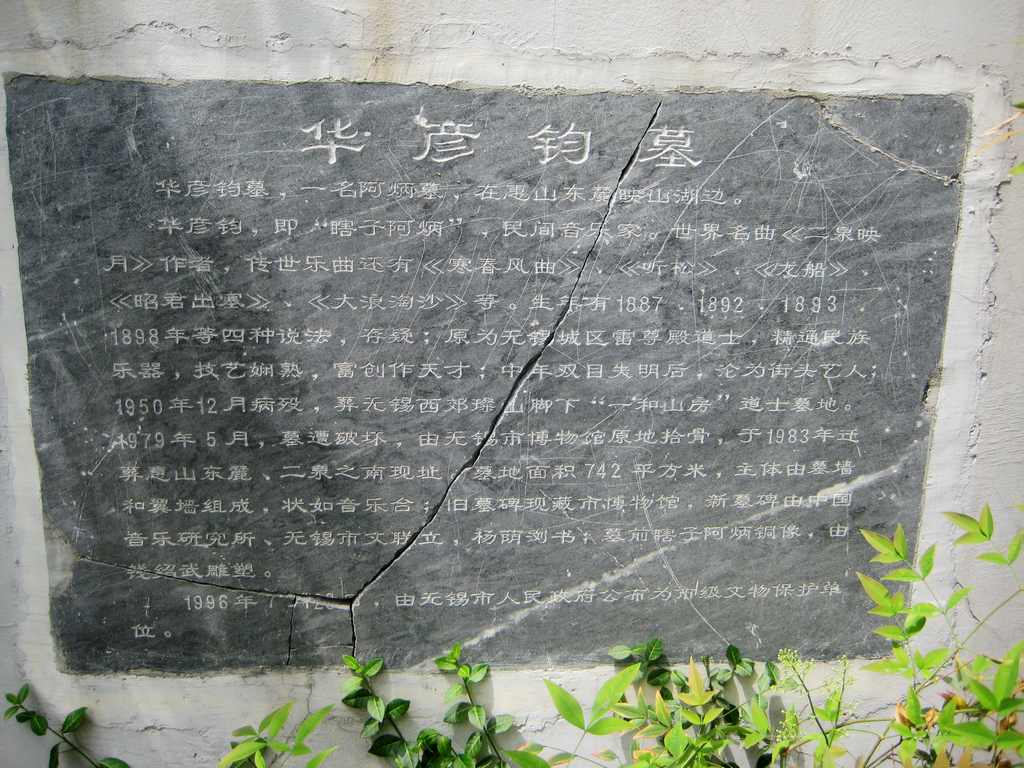 华彦钧墓
华彦钧墓，一名阿炳墓，在惠山东麓映山湖边。
华彦钧，即“瞎子阿炳”，民间音乐家。世界名曲《二泉映
月》作者，传世乐曲还有《寒春风曲》、《听松》、《龙船》、
《昭君出塞》、《大浪淘沙》等。生年有1887、1892、1893、
1898年等四种说法，存疑；原为无锡城区雷尊殿道士，精通民族
乐器，技艺娴熟，富创作天才；中年双目失明后，沦为街头艺人；
1950年12月病殁，葬无锡西郊璨山脚下“一和山房”道士墓地。
1979年5月，墓遭破坏，由无锡市博物馆原地拾骨，于1983年迁
葬惠山东麓、二泉之南现址。墓地面积742平方米，主体由墓墙
和翼墙组成，状如音乐台；旧墓碑现藏市博物馆，新墓碑由中国
音乐研究所、无锡市文联立，杨荫浏书；墓前瞎子阿炳铜像，由
钱绍武雕塑。
1996年，由无锡市人民政府公布为市级文物保护单
位。